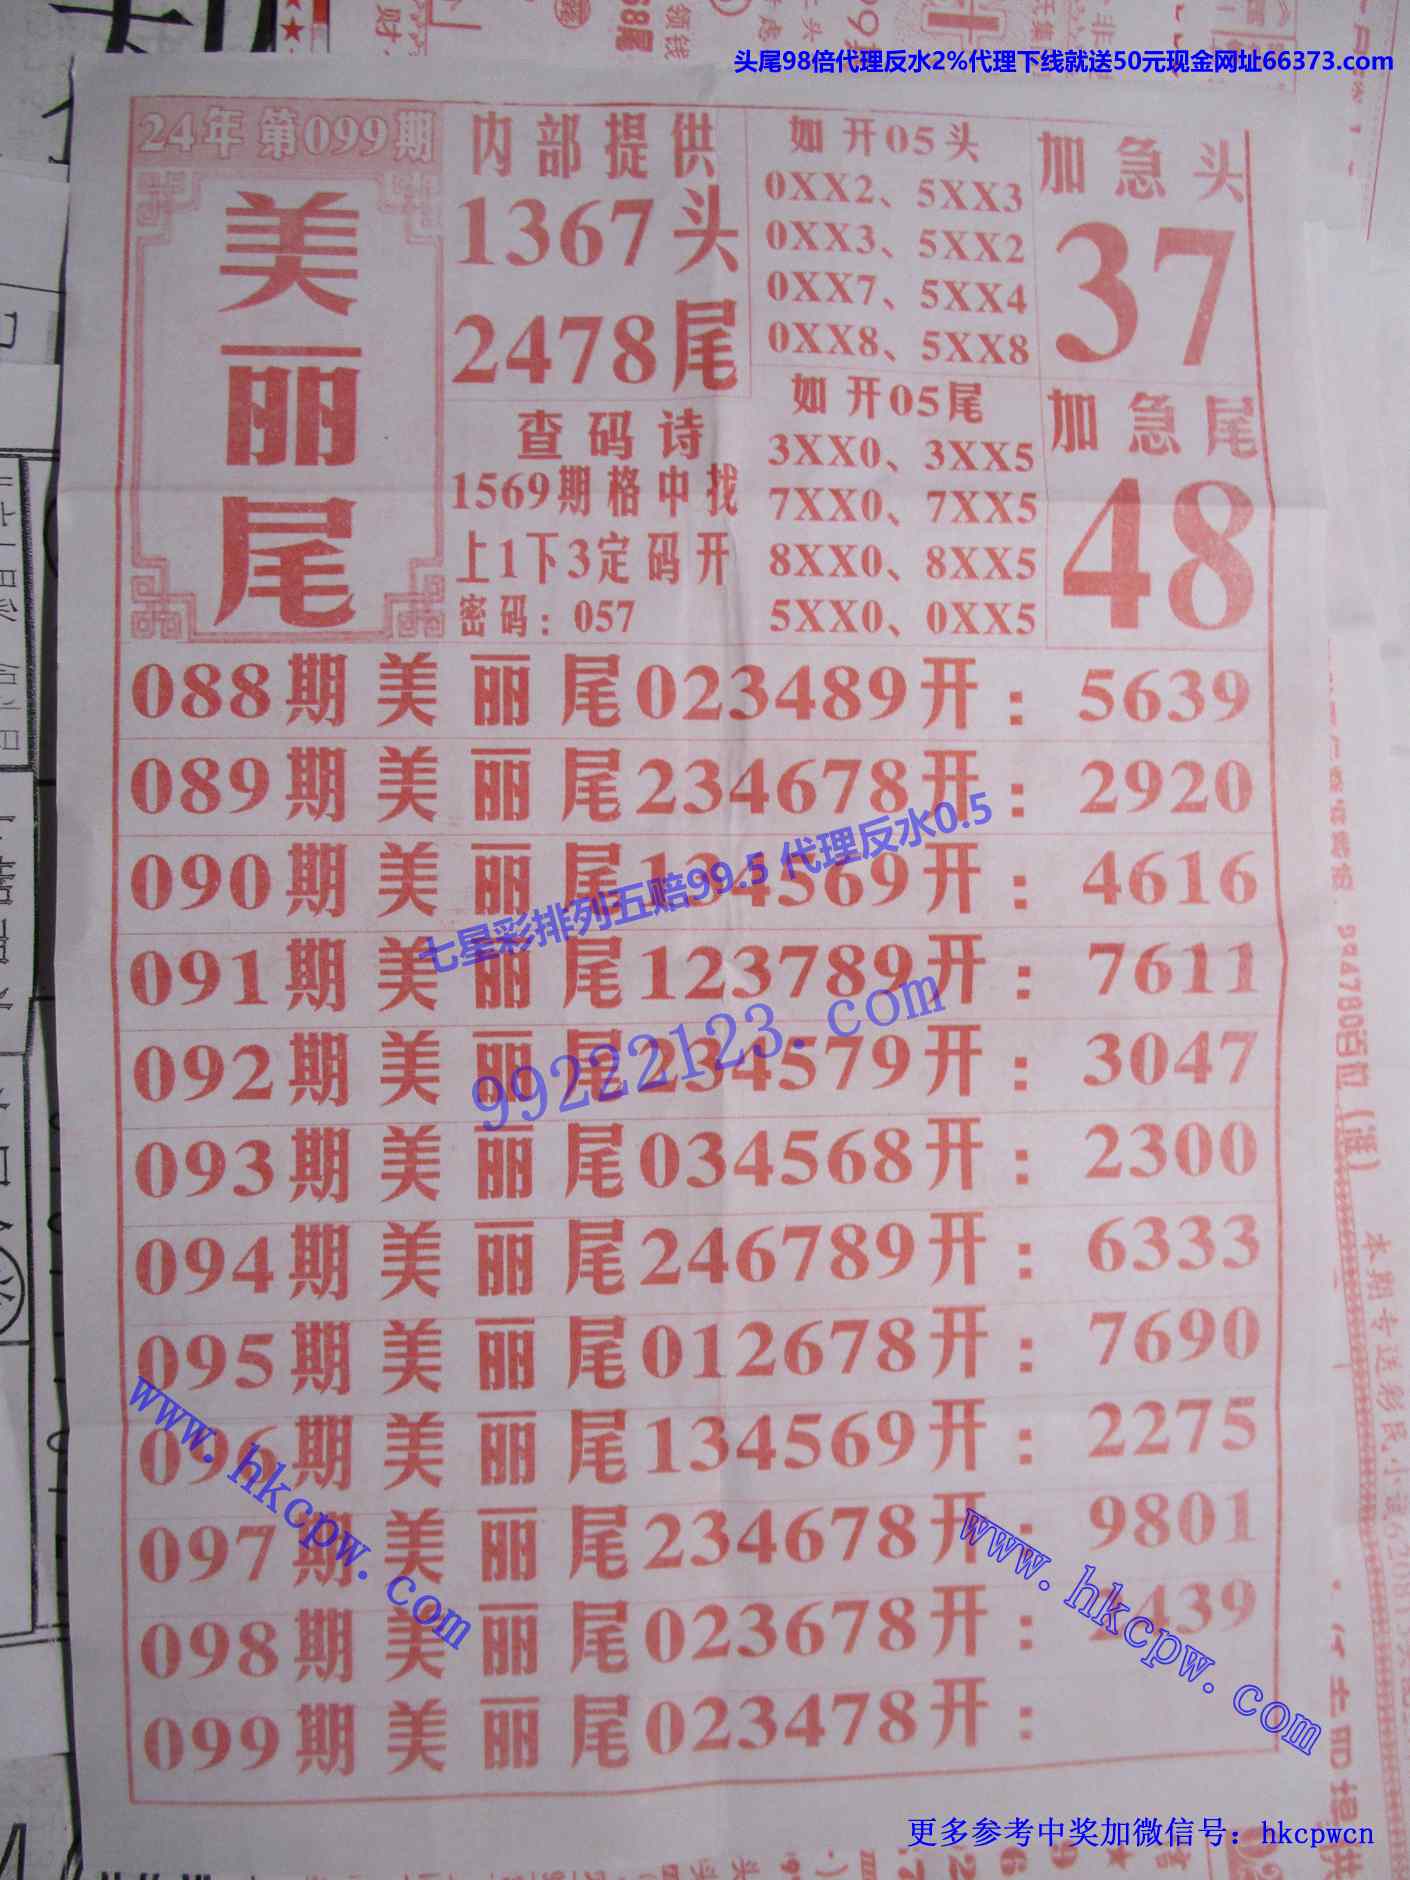 头尾98倍代理反水2%代理下线就送50元现金网址66373.com
24年 第099期
美丽尾
内部提供
1367头
2478尾
查码诗
1569期格中找
上1下3定码开
密码：057
如 开05头
0XX2、5XX3
0XX3、5XX2
0XX7、5XX4
0XX8、5XX8
如 开05尾
3XX0、3XX5
7XX0、7XX5
8XX0、8XX5
5XX0、0XX5
加急头
37
加急尾
48
088期美丽尾023489开：5639
089期美丽尾234678开：2920
090期美丽尾134569开：4616
091期美丽尾123789开：7611
092期美丽尾234579开：3047
093期美丽尾034568开：2300
094期美丽尾246789开：6333
095期美丽尾012678开：7690
096期美丽尾134569开：2275
097期美丽尾234678开：9801
098期美丽尾023678开：439
099期美丽尾023478开：
七星彩排列五赔99.5 代理反水0.5
99222123.com
www.hkcpw.com
www.hkcpw.com
更多参考中奖加微信号：hkcpwcn